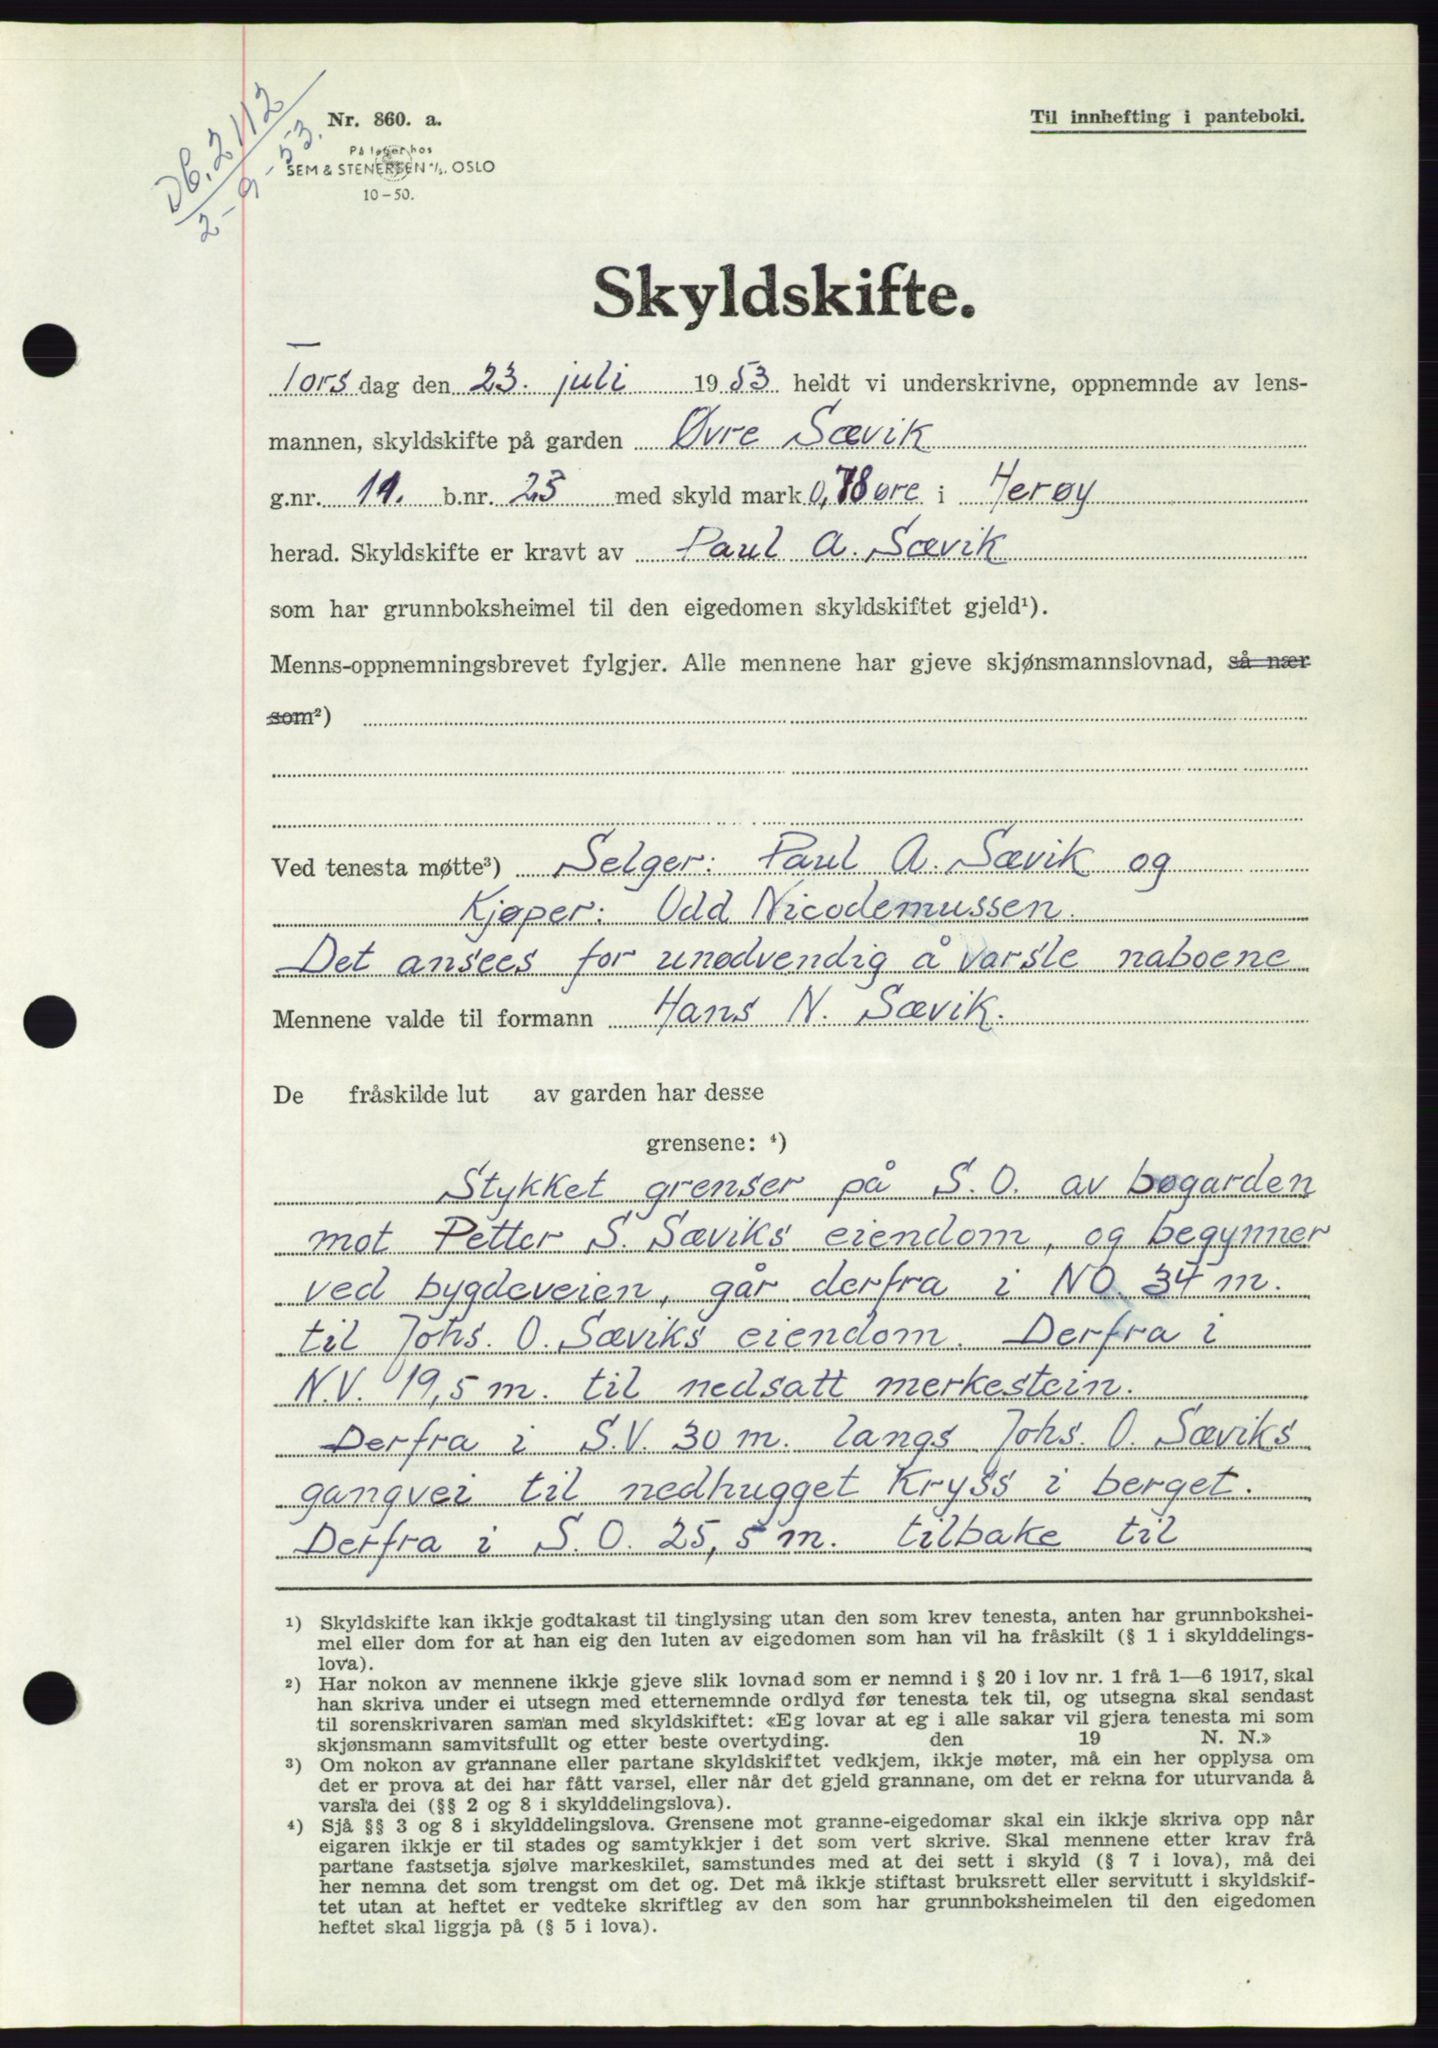 Db. 2112
2-9-53.
Nr. 860. a.
På lager hos
SEM & STENERSEN A/S. OSLO
10-50.
Til innhefting i panteboki.
Skyldskifte.
Tors dag den 23. juli 1953 heldt vi underskrivne, oppnemnde av lens-
mannen, skyldskifte på garden Øvre Sævik
g.nr. 11. b.nr. 23 med skyld mark 0,78 øre i Herøy
herad. Skyldskifte er kravt av Paul A. Sævik
som har grunnboksheimel til den eigedomen skyldskiftet gjeld¹).
Menns-oppnemningsbrevet fylgjer. Alle mennene har gjeve skjønsmannslovnad, så nær
som²)
Ved tenesta møtte³) Selger: Paul A. Sævik og
Kjøper: Odd Nicodemussen.
Det ansees for unødvendig å varsle naboene
Mennene valde til formann Hans N. Sævik.
De fråskilde lut av garden har desse
grensene: ⁴)
Stykket grenser på S.O. av bøgarden
mot Petter S. Sæviks eiendom, og begynner
ved bygdeveien, går derfra i NO 34 m.
til Johs. O. Sæviks eiendom. Derfra i
N.V. 19,5 m. til nedsatt merkestein.
Derfra i S.V. 30 m. langs Johs. O. Sæviks
gangvei til nedhugget Kryss i berget.
Derfra i S.O. 25,5 m. tilbake til
¹) Skyldskifte kan ikkje godtakast til tinglysing utan den som krev tenesta, anten har grunnbokshei-
mel eller dom for at han eig den luten av eigedomen som han vil ha fråskilt (§ 1 i skylddelings-
lova).
²) Har nokon av mennene ikkje gjeve slik lovnad som er nemnd i § 20 i lov nr. 1 frå 1—6 1917, skal
han skriva under ei utsegn med etternemnde ordlyd før tenesta tek til, og utsegna skal sendast
til sorenskrivaren saman med skyldskiftet: «Eg lovar at eg i alle sakar vil gjera tenesta mi som
skjønsmann samvitsfullt og etter beste overtyding. den 19 N. N.»
³) Om nokon av grannane eller partane skyldskiftet vedkjem, ikkje møter, må ein her opplysa om
det er prova at dei har fått varsel, eller når det gjeld grannane, om det er rekna for uturvanda å
varsla dei (§§ 2 og 8 i skylddelingslova).
⁴) Sjå §§ 3 og 8 i skylddelingslova. Grensene mot granne-eigedomar skal ein ikkje skriva opp når
eigaren ikkje er til stades og samtykkjer i det som vert skrive. Skal mennene etter krav frå
partane fastsetja sjølve markeskilet, samstundes med at dei sett i skyld (§ 7 i lova), må dei
her nemna det som trengst om det og. Det må ikkje stiftast bruksrett eller servitutt i skyldskif-
tet utan at heftet er vedteke skriftleg av den som har grunnboksheimelen til den eigedomen
heftet skal liggja på (§ 5 i lova).